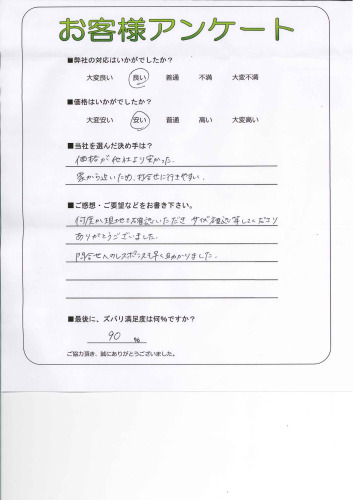 お客様アンケート
■弊社の対応はいかがでしたか?
大変良い 良い 普通 不満 大変不満
■価格はいかがでしたか?
大変安い 安い 普通 高い 大変高い
■当社を選んだ決め手は?
価格が他社より安かった.
家から近いため、打合せに行きやすい.
■ご感想・ご要望などをお書き下さい。
何度か現地まで確認いただき サイズ確認等してくださり
ありがとうございました.
問合せへのレスポンスも早く助かりました.
■最後に、ズバリ満足度は何%ですか?
90 %
ご協力頂き、誠にありがとうございました。